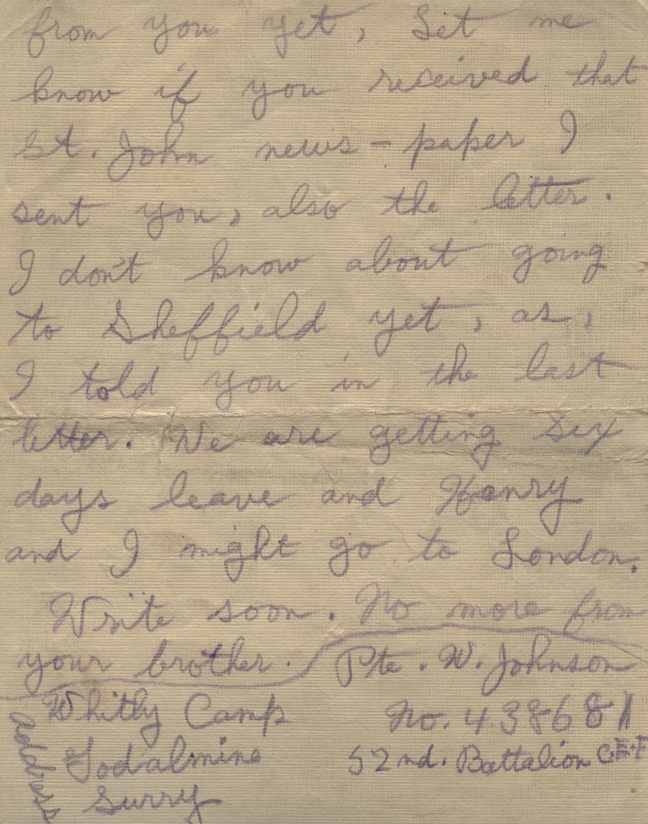 from you yet, Let me
know if you received that
St. John news-paper I
sent you, also the letter.
I don't know about going
to Sheffield yet, as,
I told you in the last
letter. We are getting six
days leave and Henry
and I might go to London.
Write soon. No more from
your brother. Pte. W. Johnson
Whitly Camp No. 438681
Godalmine 52nd. Battalion C.E.F
Surry
Address